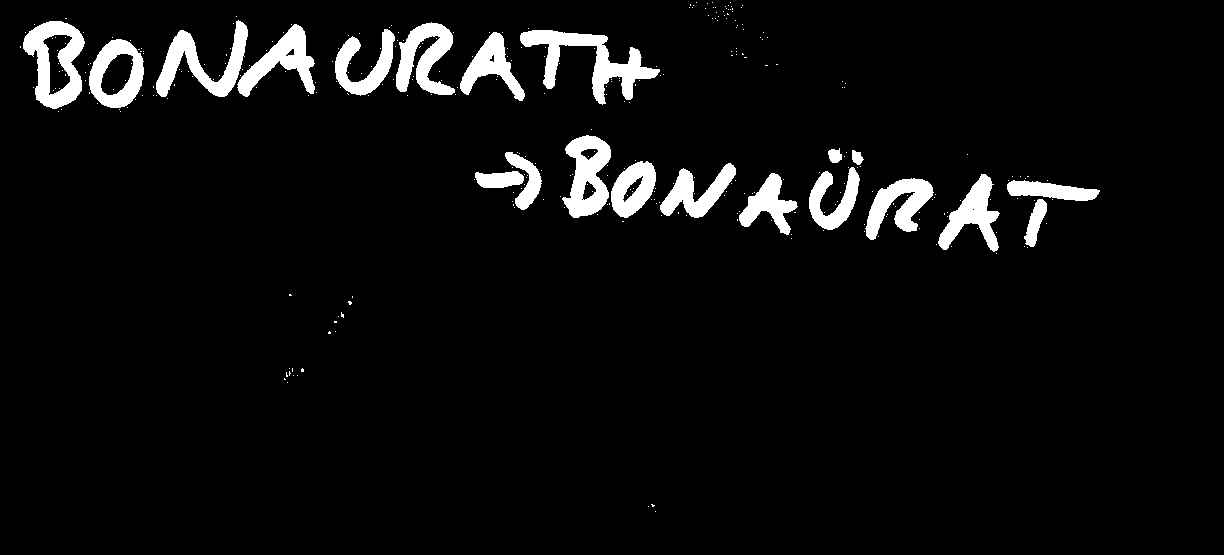 BONAURATH
→ BONAÜRAT